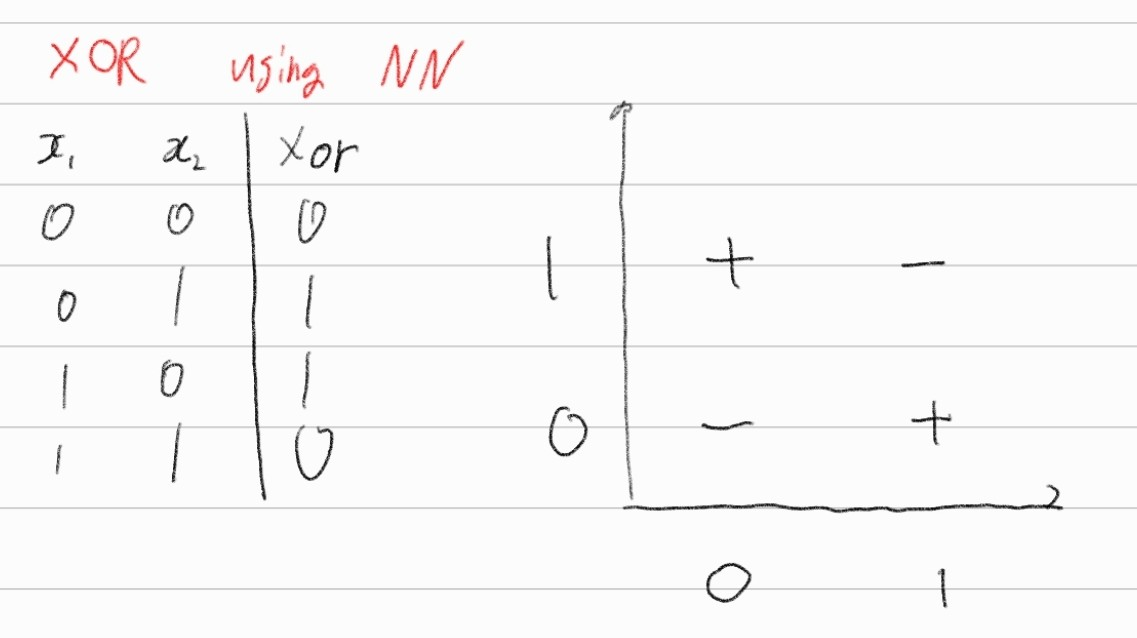 XOR using NN
x₁ x₂ Xor
0 0 0
0 1 1
1 0 1
1 1 0
1 + −
0 − +
0 1